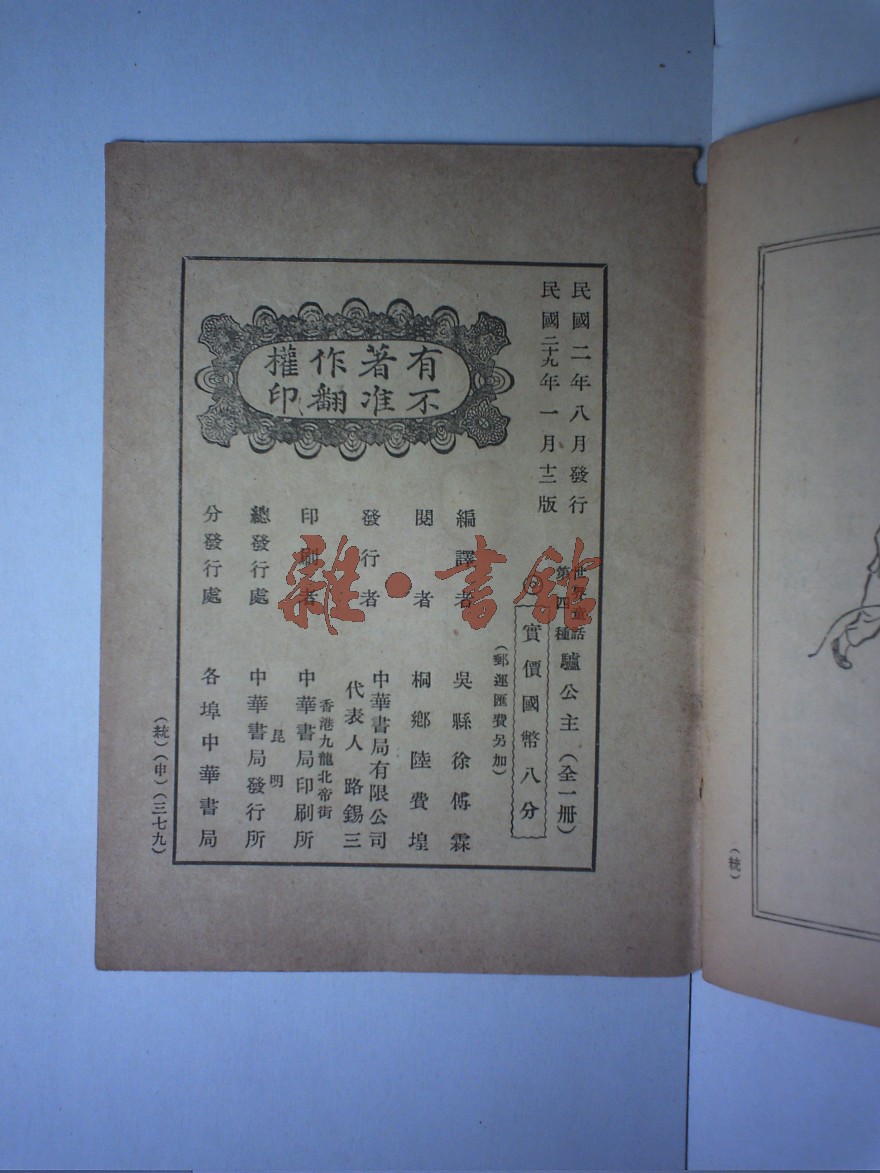 民國二年八月發行
民國二十九年一月十三版
世界童話
第四種
驢公主（全一冊）
實價國幣八分
（郵運匯費另加）
有著作權
不准翻印
編譯者 吳縣徐傅霖
閱者 桐鄉陸費堭
發行者 中華書局有限公司
代表人 路錫三
印刷者 香港九龍北帝街
中華書局印刷所
總發行處 昆明
中華書局發行所
分發行處 各埠中華書局
（統）（申）（三七九）
（統）
雜·書館